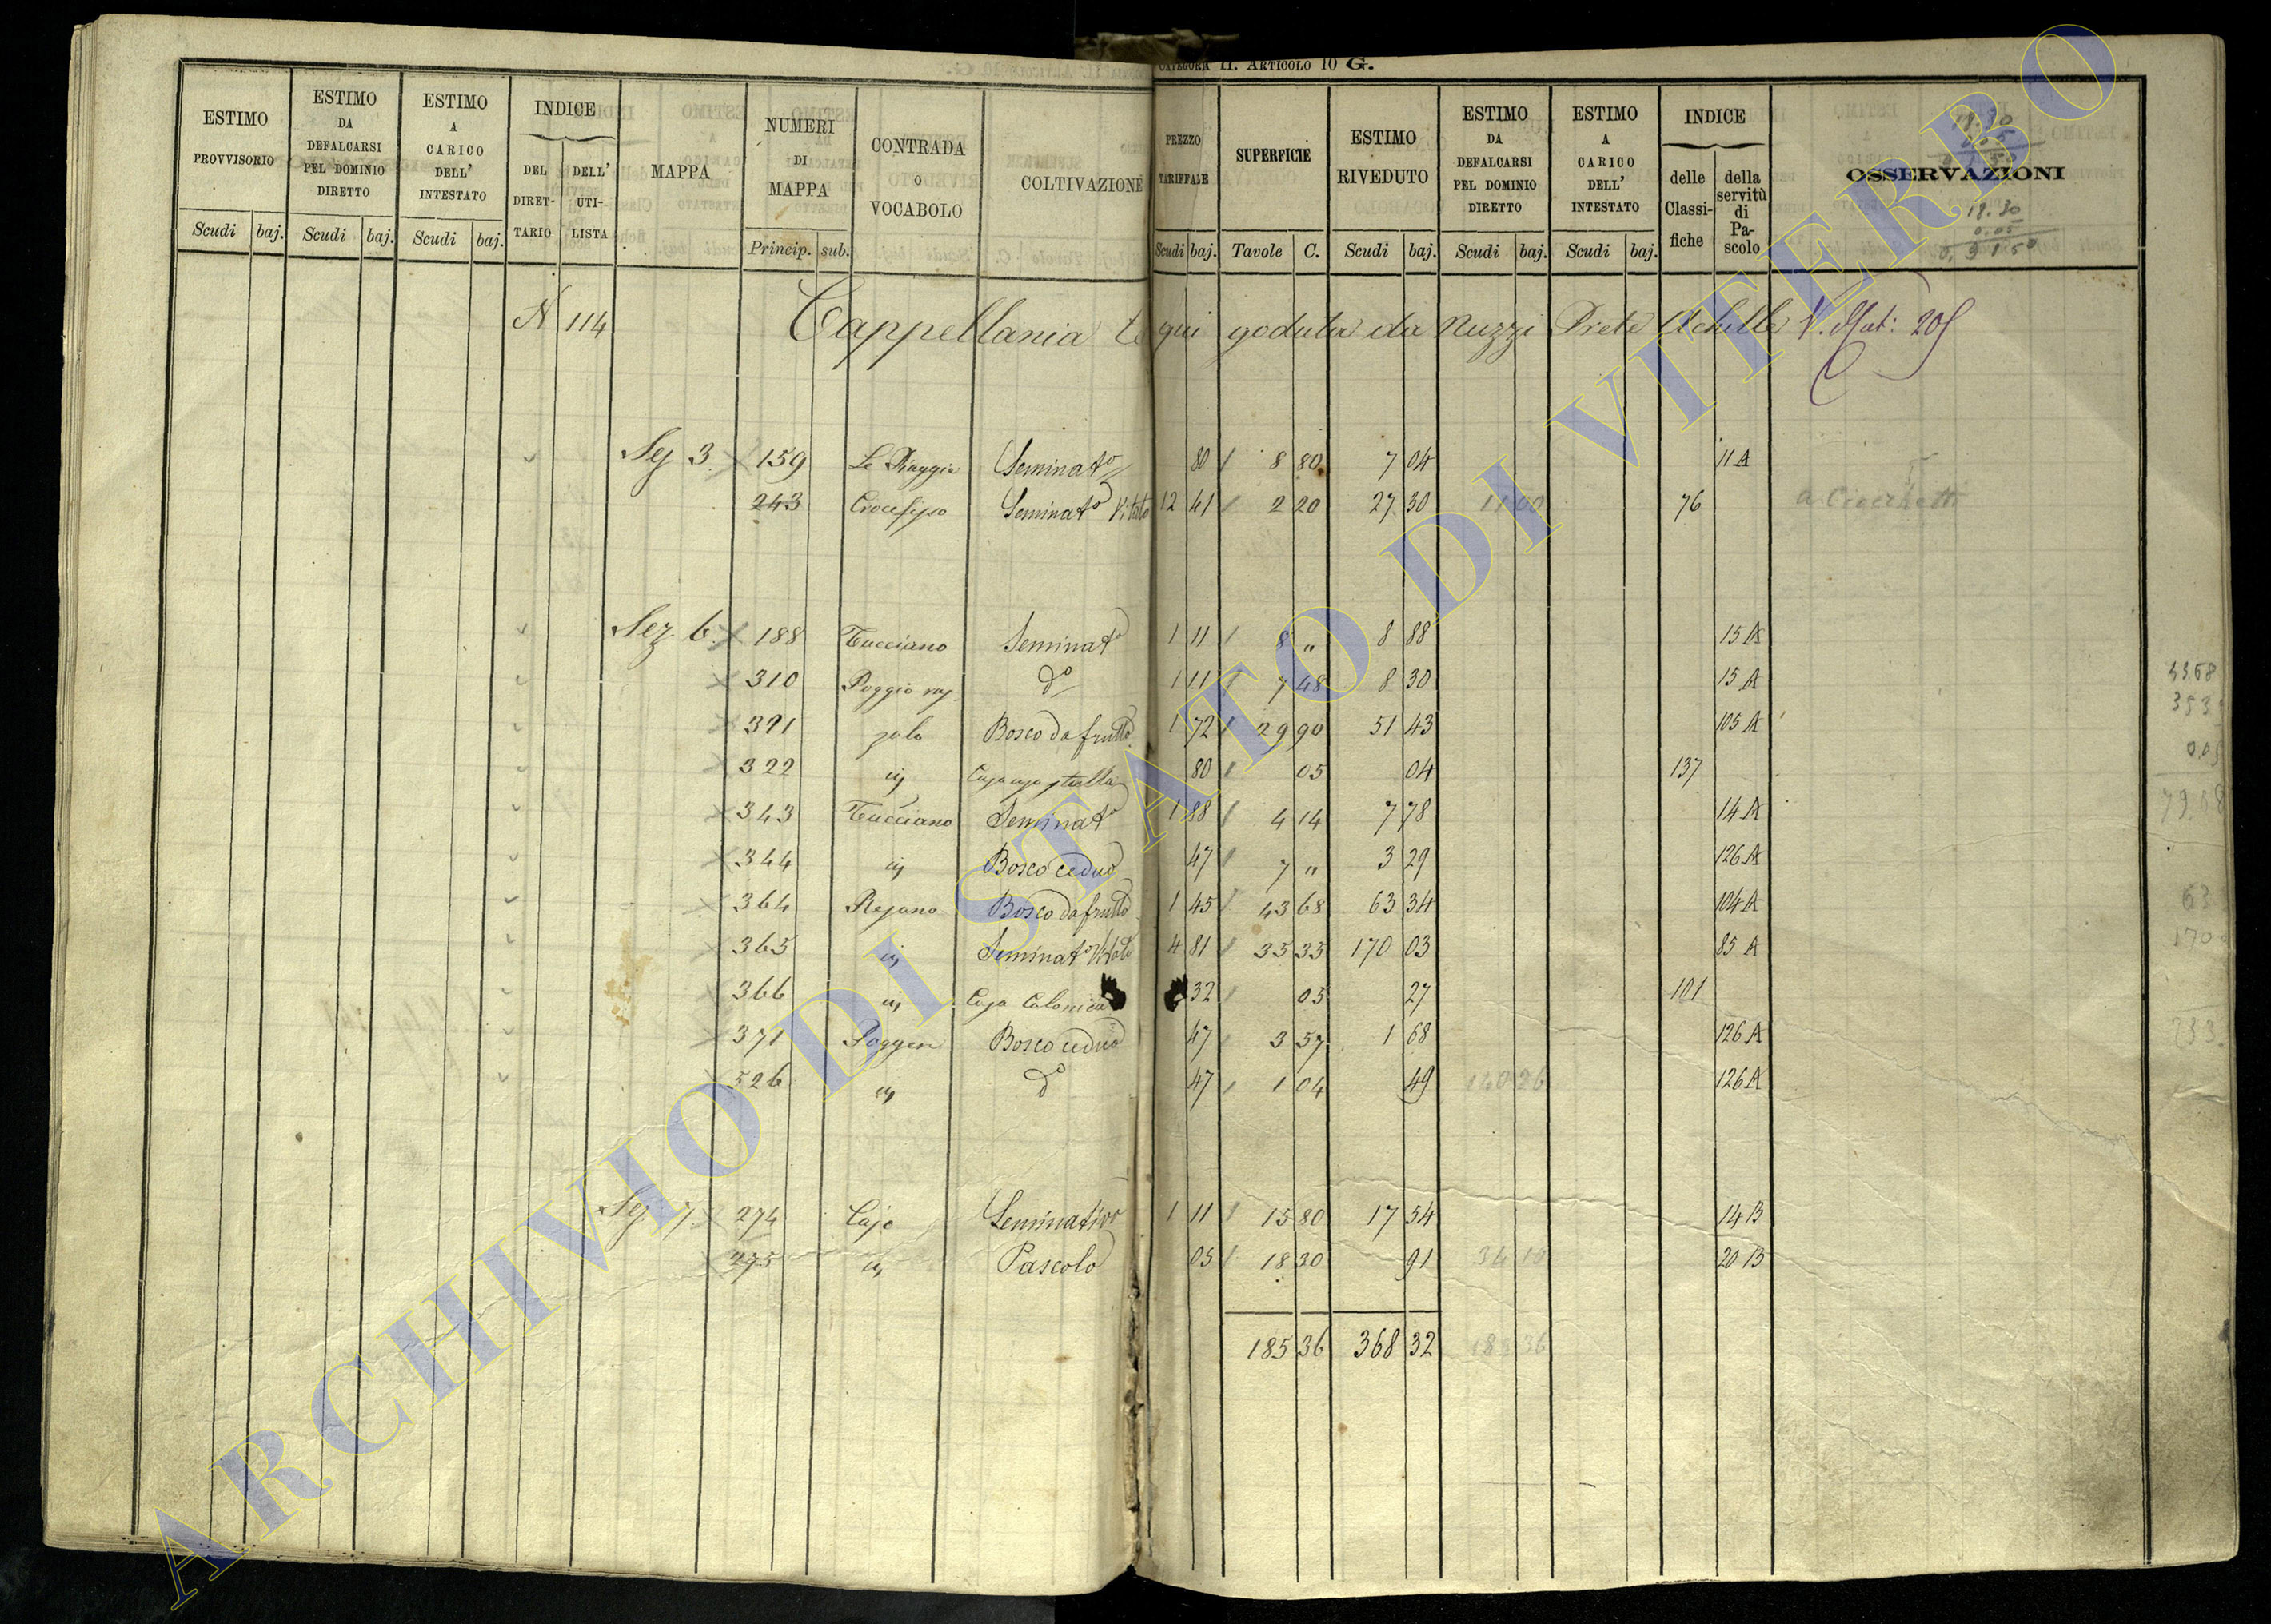 CATEGORIA II. ARTICOLO 10 G.
ESTIMO PROVVISORIO
ESTIMO DA DEFALCARSI PEL DOMINIO DIRETTO
ESTIMO A CARICO DELL' INTESTATO
INDICE
DEL DIRET-TARIO
DELL' UTI-LISTA
MAPPA
NUMERI DI MAPPA
CONTRADA O VOCABOLO
COLTIVAZIONE
PREZZO TARIFFALE
SUPERFICIE
ESTIMO RIVEDUTO
ESTIMO DA DEFALCARSI PEL DOMINIO DIRETTO
ESTIMO A CARICO DELL' INTESTATO
INDICE
delle Classi-fiche
della servitù di Pa-scolo
OSSERVAZIONI
18.30
18.30
0.05
0,9150
Scudi baj. Scudi baj. Scudi baj. Princip. sub. Scudi baj. Tavole C. Scudi baj. Scudi baj. Scudi baj.
N 114 Cappellania goduta da Nuzzi Prete Achille
Sez 3 159 Le Piaggie Seminat° 80 8 80 7 04 11 A
243 Crocefisso Seminat° Vitato 12 41 2 20 27 30 11 00 76
Sez. 6 188 Tucciano Seminat° 1 11 8 " 8 88 15 A
310 Poggio 1 11 7 48 8 30 15 A
321 Bosco da frutto 1 72 29 90 51 43 105 A
322 80 05 04 137
343 Tucciano Seminat° 1 88 4 14 7 78 14 A
344 Bosco ceduo 47 7 " 3 29 126 A
364 Rejano Bosco da frutto 1 45 43 68 63 34 104 A
365 Seminat° Vitato 4 81 35 35 170 03 85 A
366 Casa Colonica 32 05 27 101
371 Bosco ceduo 47 3 57 1 68 126 A
526 d° 47 1 04 49 140 26 126 A
Sez 7 274 Cajo Seminativo 1 11 15 80 17 54 14 B
275 Pascolo 05 18 30 91 34 10 20 B
185 36 368 32
ARCHIVIO DI STATO DI VITERBO